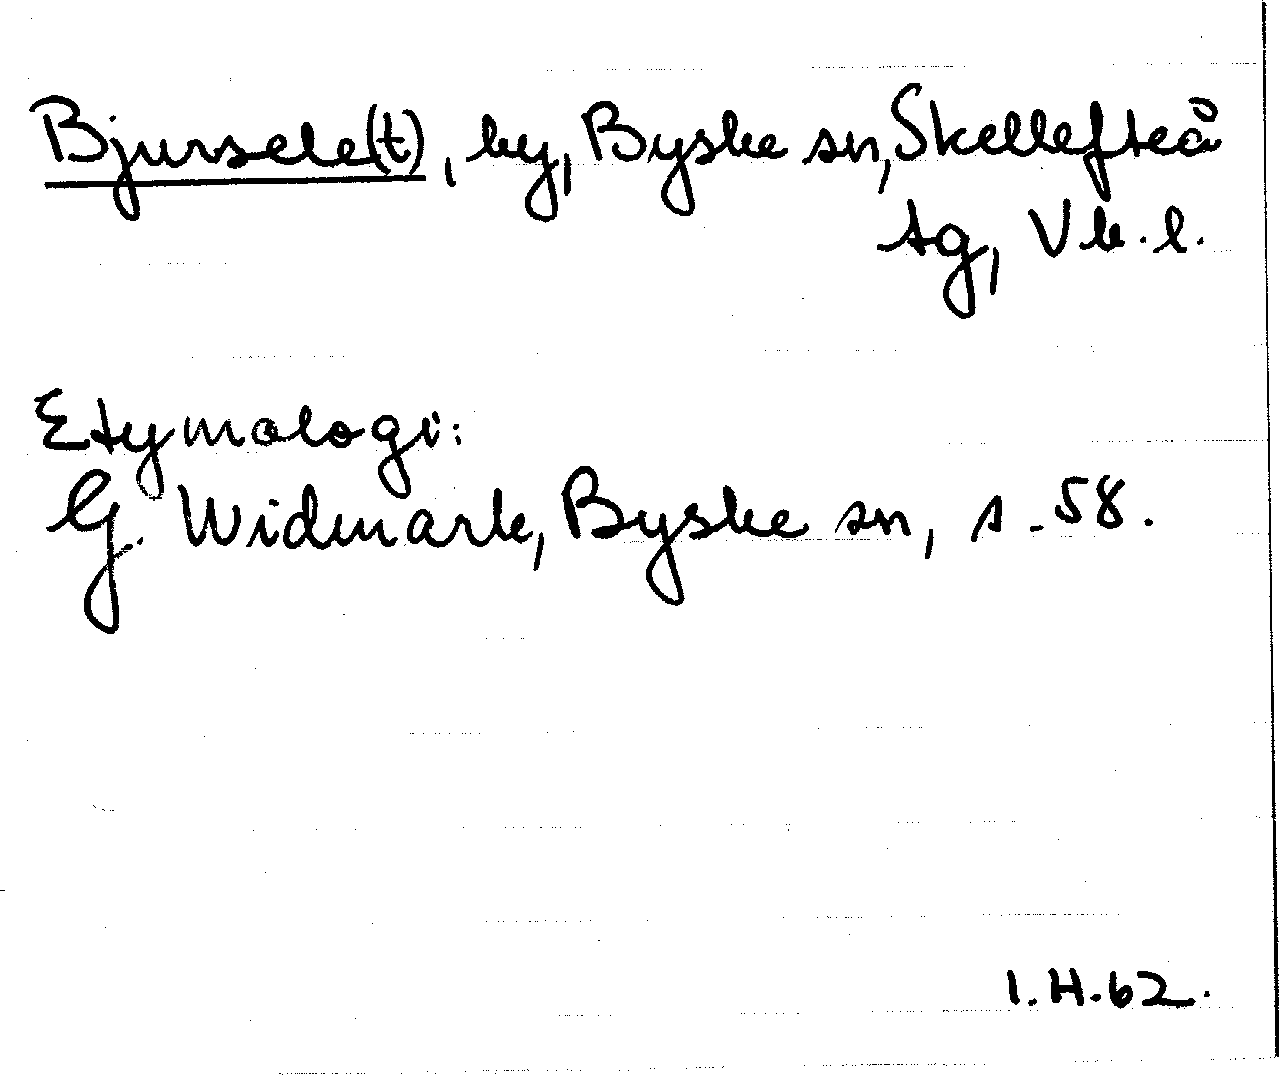 Bjursele(t), by, Byske sn, Skellefteå
tg, Vb.l.
Etymologi:
G. Widmark, Byske sn, s. 58.
I.H.62.